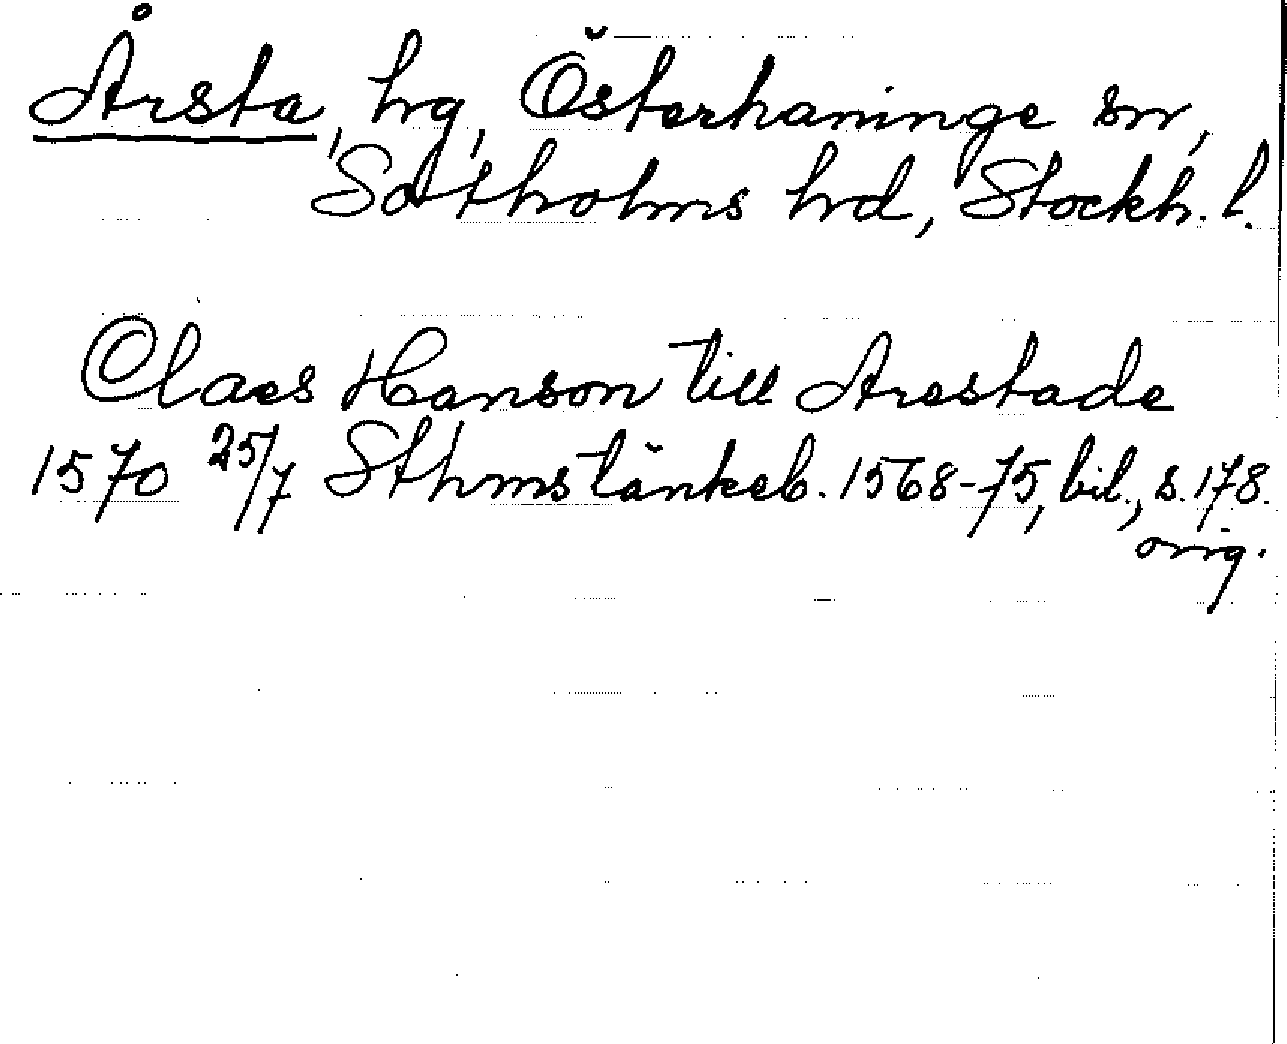 Årsta, hrg, Österhaninge sn,
Sotholms hrd, Stockh. l.
Claes Hanson till Arestade
1570 25/7 Sthms tänkeb. 1568-75, bil., s. 178.
orig.